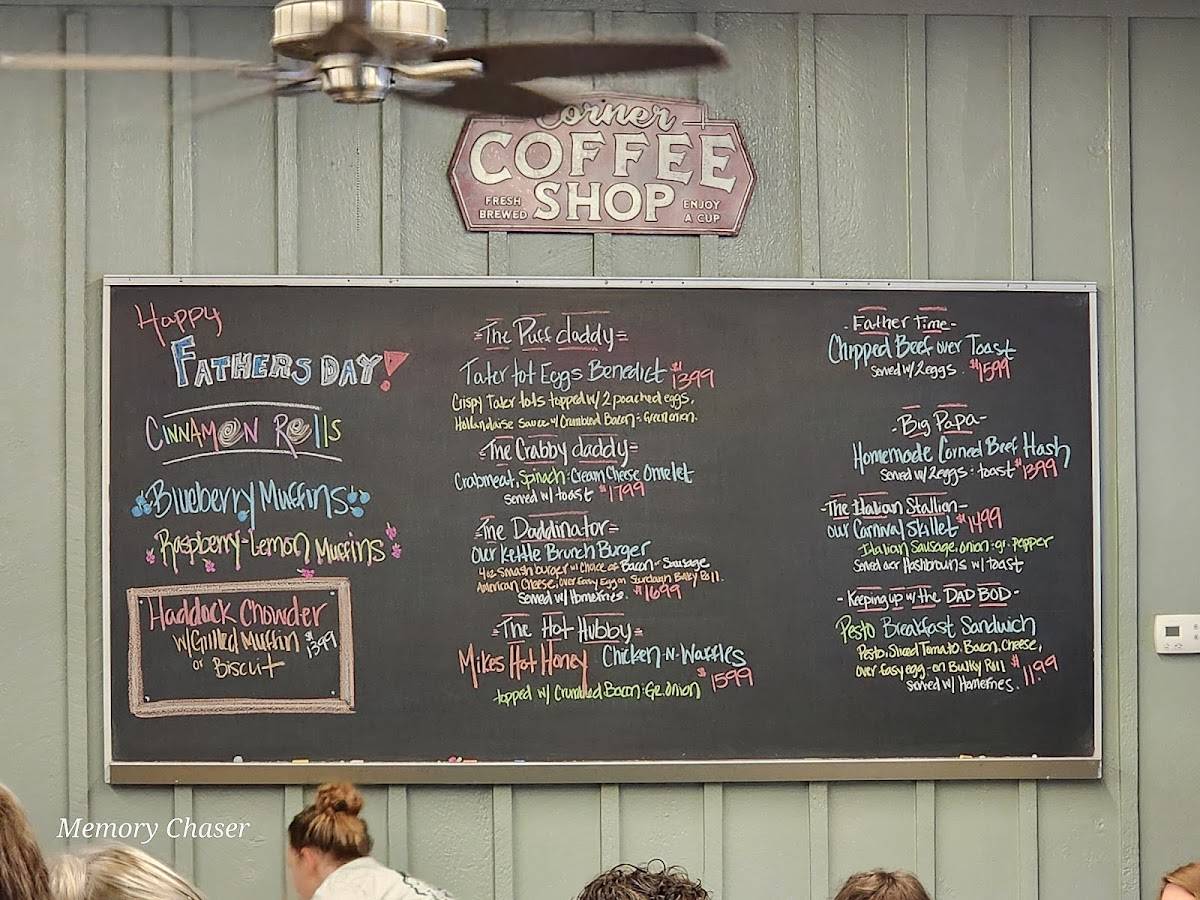 Corner
COFFEE
SHOP
FRESH
BREWED
ENJOY
A CUP
Happy
FATHERS DAY!
CINNAMON ROllS
Blueberry Muffins
Raspberry-Lemon Muffins
Haddock Chowder
w/Grilled Muffin $1399
or Biscuit
=The Puff daddy=
Tater tot Eggs Benedict $1399
Crispy Tater tots topped w/ 2 poached eggs,
Hollandaise Sauce w/ Crumbled Bacon : Green onion.
=The Crabby daddy=
Crabmeat, Spinach : Cream Cheese Omelet
Served w/ toast $1799
=The Daddinator=
Our Kettle Brunch Burger
4oz Smashburger w/ Choice of Bacon or Sausage
American Cheese, over Easy Egg on Bulky Roll.
Served w/ Homefries. $1699
=The Hot Hubby=
Mikes Hot Honey Chicken-N-Waffles
$1599
topped w/ Crumbled Bacon : Gr. Onion
- Father Time -
Chipped Beef over Toast
Served w/ 2 eggs. $1599
- Big Papa -
Homemade Corned Beef Hash
Served w/ 2 eggs : toast $1399
-The Italian Stallion-
Our Carnival Skillet $1499
Italian Sausage, onion : gr. Pepper
Served over Hashbrowns w/ toast
- Keeping up w/ the DAD BOD -
Pesto Breakfast Sandwich
Pesto, Sliced Tomato, Bacon, Cheese,
over easy egg - on Bulky Roll $11.99
Served w/ Homefries.
Memory Chaser